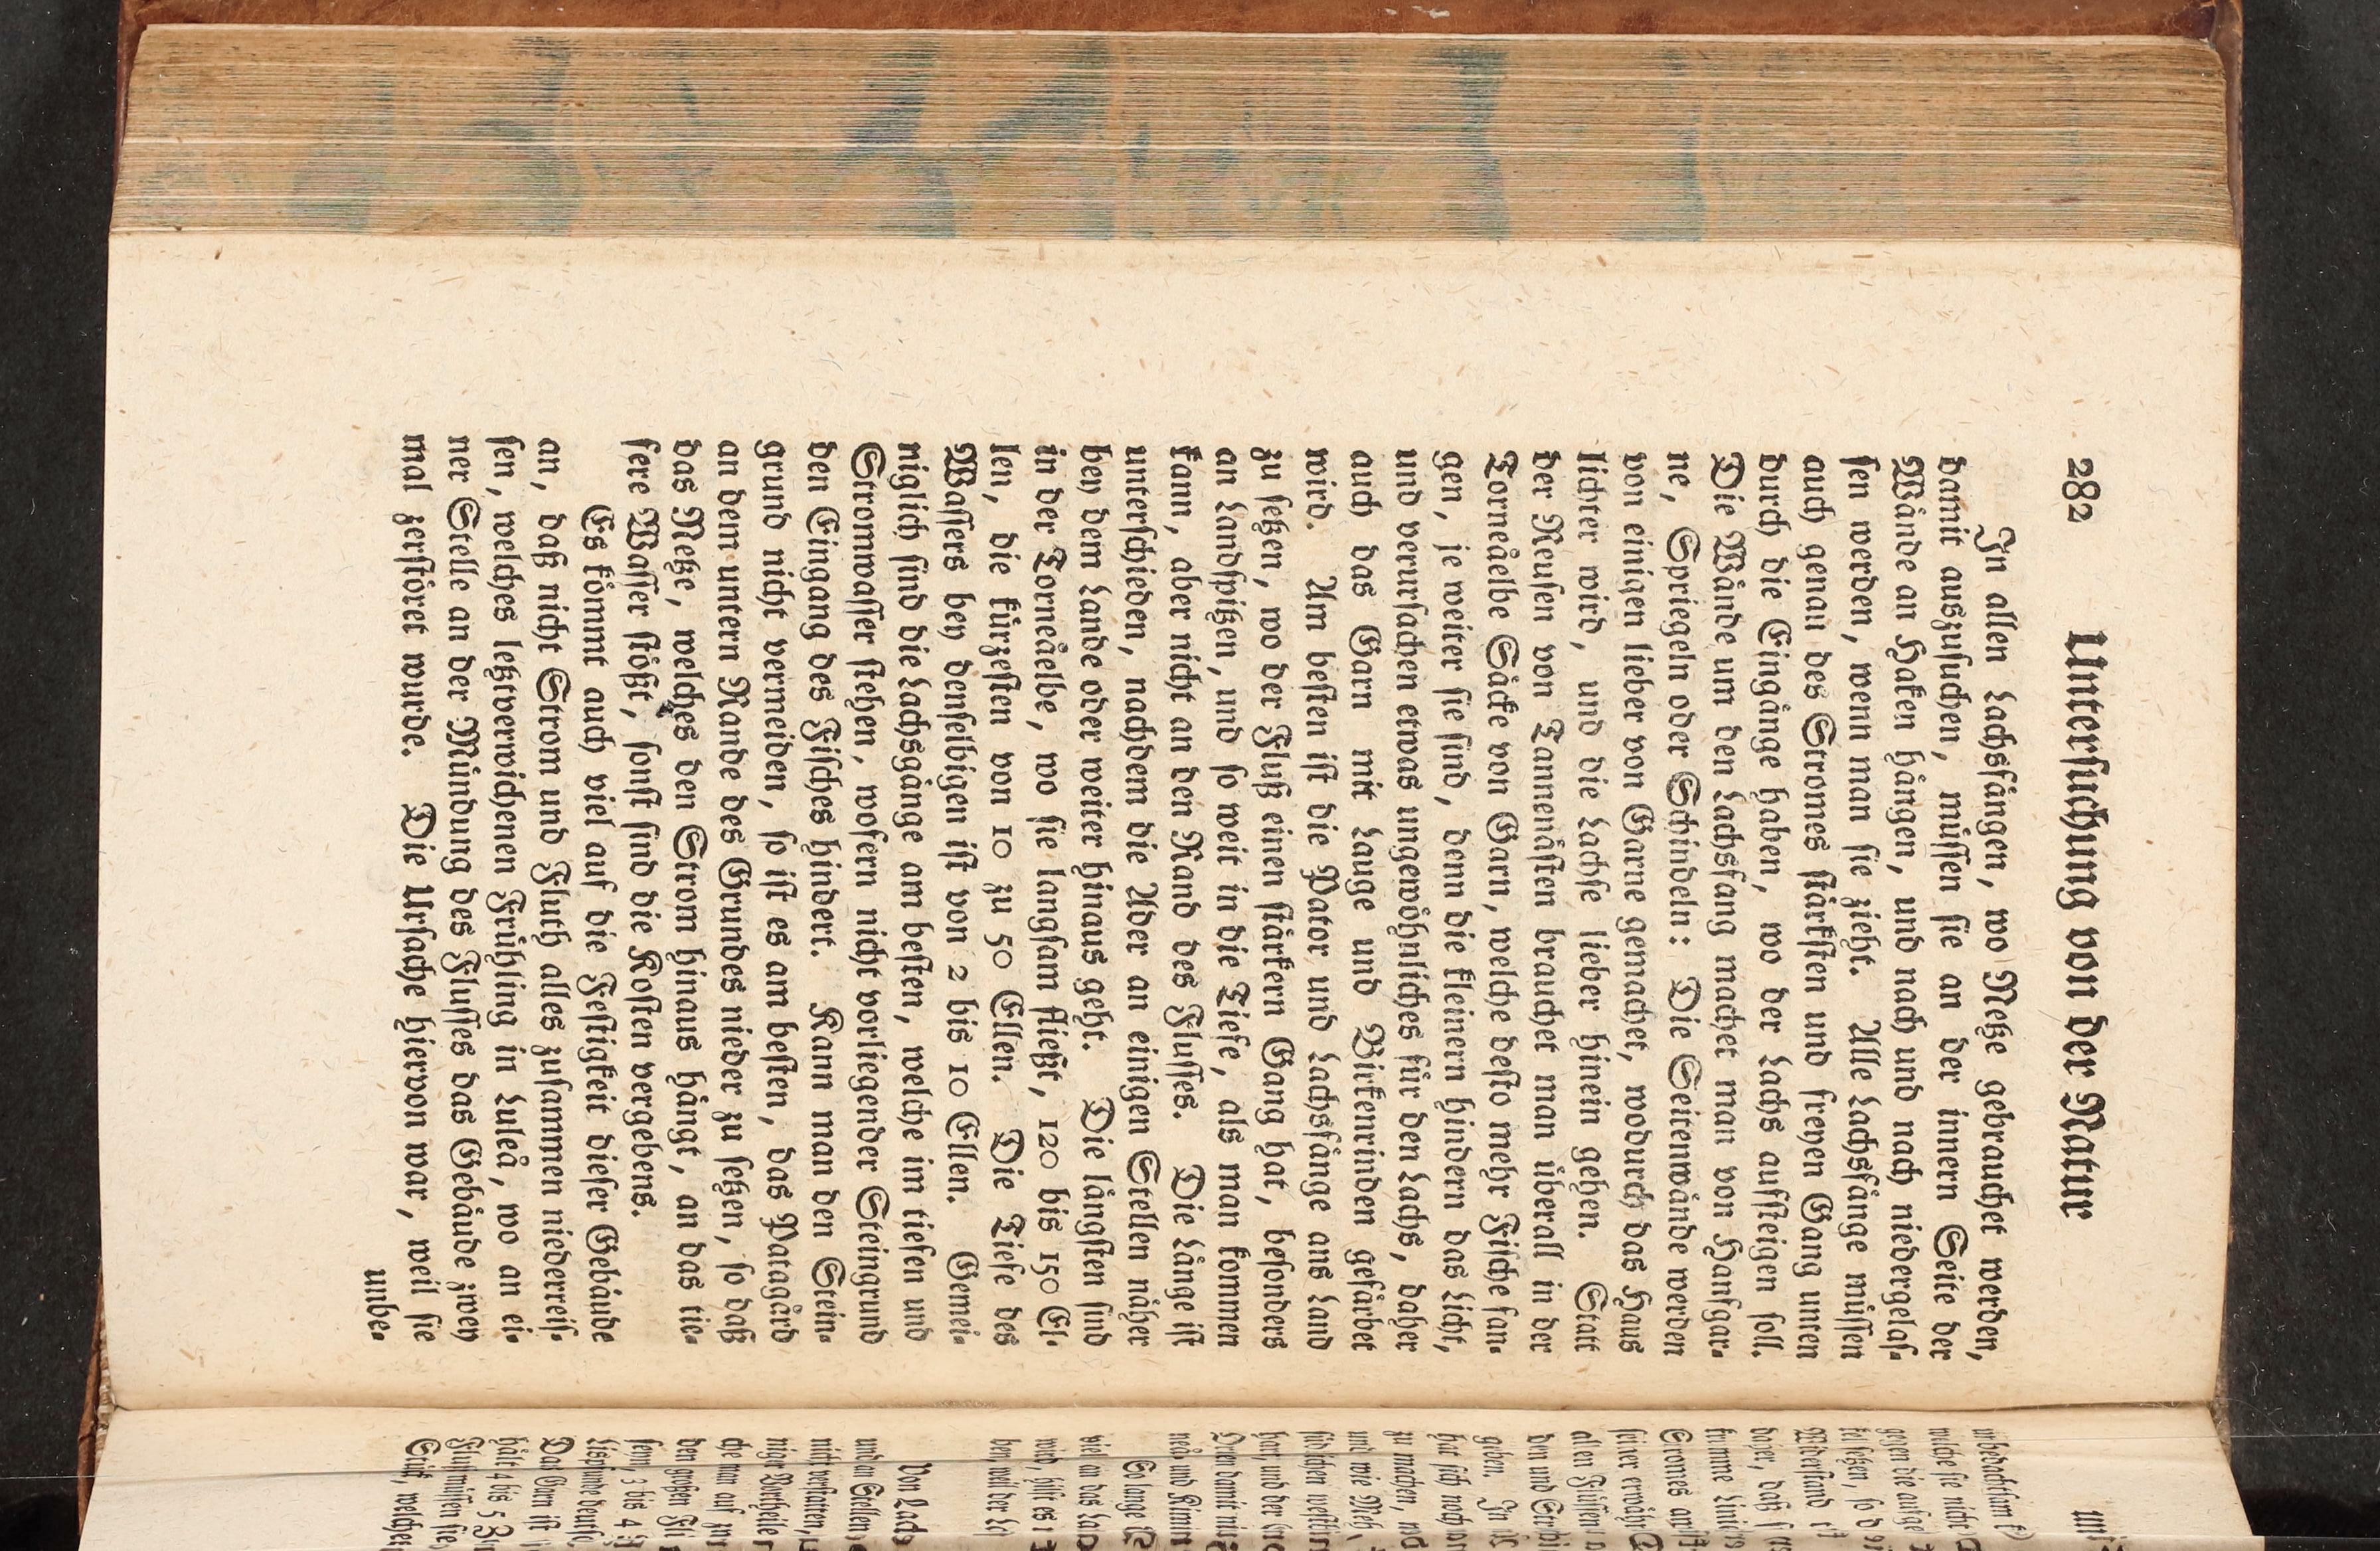 282 Untersuchung von der Natur
In allen Lachsfängen, wo Netze gebrauchet werden,
damit auszusuchen, müssen sie an der innern Seite der
Wände an Haken hängen, und nach und nach niedergelas-
sen werden, wenn man sie zieht. Alle Lachsfänge müssen
auch genau des Stromes stärksten und freyen Gang unten
durch die Eingänge haben, wo der Lachs aufsteigen soll.
Die Wände um den Lachsfang machet man von Hanfgar-
ne, Spriegeln oder Schindeln: Die Seitenwände werden
von einigen lieber von Garne gemachet, wodurch das Haus
lichter wird, und die Lachse lieber hinein gehen. Statt
der Reusen von Tannenästen brauchet man überall in der
Torneåelbe Säcke von Garn, welche desto mehr Fische fan-
gen, je weiter sie sind, denn die kleinern hindern das Licht,
und verursachen etwas ungewöhnliches für den Lachs, daher
auch das Garn mit Lauge und Birkenrinden gefärbet
wird. Um besten ist die Pator und Lachsfänge ans Land
zu setzen, wo der Fluß einen stärkern Gang hat, besonders
an Landspitzen, und so weit in die Tiefe, als man kommen
kann, aber nicht an den Rand des Flusses. Die Länge ist
unterschieden, nachdem die Ader an einigen Stellen näher
bey dem Lande oder weiter hinaus geht. Die längsten sind
in der Torneåelbe, wo sie langsam fließt, 120 bis 150 El-
len, die kürzesten von 10 zu 50 Ellen. Die Tiefe des
Wassers bey denselbigen ist von 2 bis 10 Ellen. Gemei-
niglich sind die Lachsgänge am besten, welche im tiefen und
Stromwasser stehen, wofern nicht vorliegender Steingrund
den Eingang des Fisches hindert. Kann man den Stein-
grund nicht vermeiden, so ist es am besten, das Patagård
an dem untern Rande des Grundes nieder zu setzen, so daß
das Netze, welches den Strom hinaus hängt, an das tie-
fere Wasser stößt, sonst sind die Kosten vergebens.
Es kömmt auch viel auf die Festigkeit dieser Gebäude
an, daß nicht Strom und Fluth alles zusammen niederreis-
sen, welches letztverwichenen Frühling in Luleå, wo an ei-
ner Stelle an der Mündung des Flusses das Gebäude zwey
mal zerstöret wurde. Die Ursache hiervon war, weil sie
unbe-
unbedachtsam
welche sie nicht
gegen die
Widerstand
krumme
Stromes
allen Flüssen
den und
geben. In
hat sich noch
zu machen,
und wie
hat, und der
Orten damit
neå und Kimi
So lange
viel an das
wird, hilft es
ben, weil der
Von
und an Stellen,
nicht verstatten,
niger Vortheile
che man auf
den großen
sern, 3 bis 4
Das Garn ist
hält 4 bis 5
Flusse müssen sie
Stück, welches